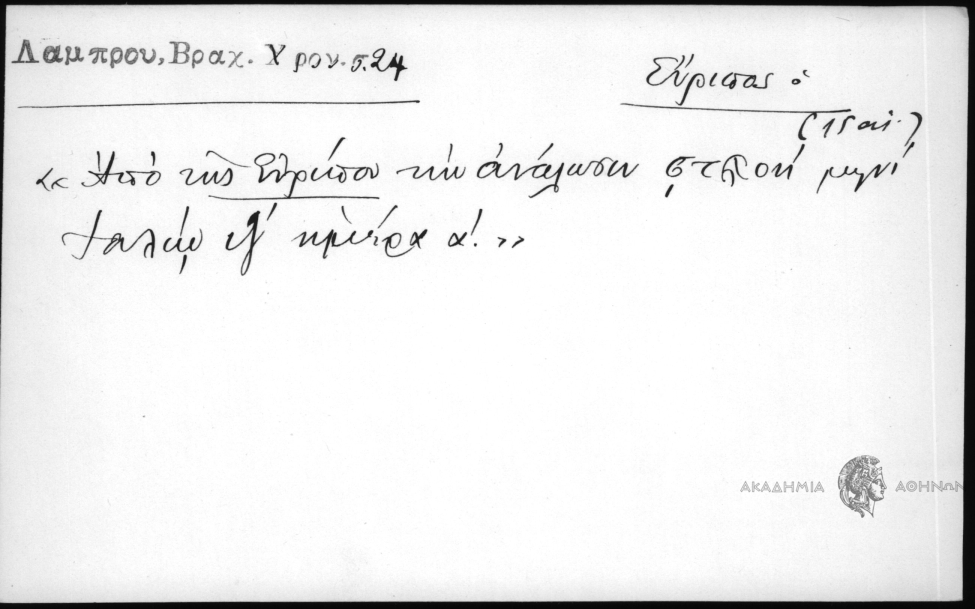 Λαμπρου, Βραχ. Χρον. σ. 24
Εὔριπος ὁ
(15 αἰ.)
«Ἀπὸ τῆς Εὐρίπου τὴν ἀνάλωσιν ͵ϛτλοή μηνὶ
ἰαλίῳ ιγ΄ ἡμέρα α΄.»
ΑΚΑΔΗΜΙΑ ΑΘΗΝΩΝ